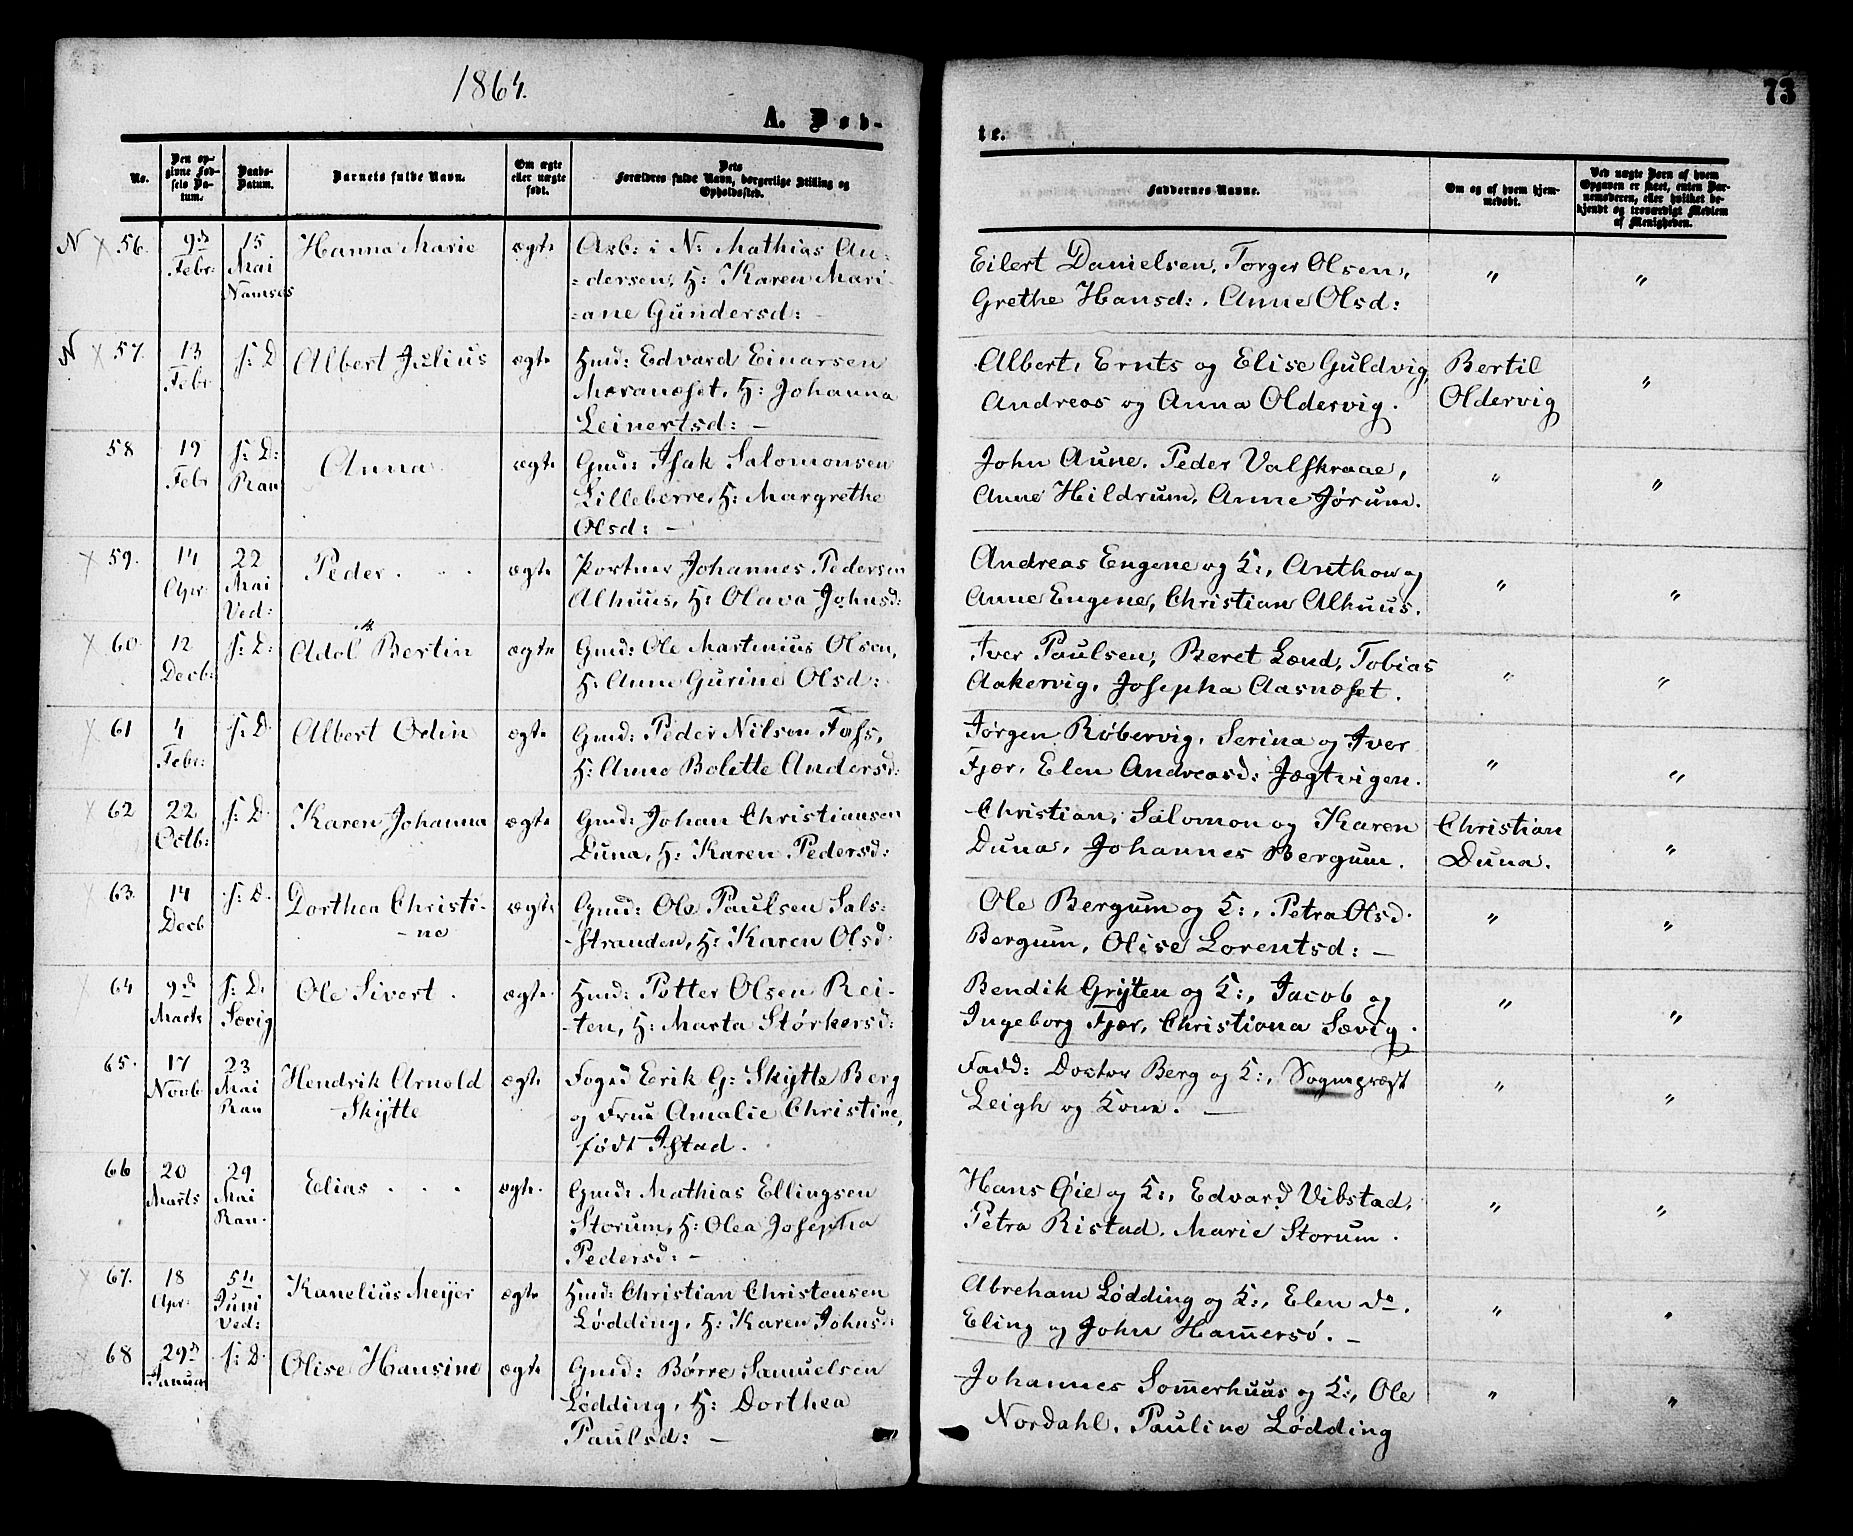 1864.
73
A. Døb-
te.
No.
Den op-
givne Fød-
sels Da-
tum.
Daabs-
Datum.
Barnets fulde Navn.
Om ægte
eller uægte
født.
Dets
Forældres fulde Navn, borgerlige Stilling og
Opholdssted.
Faddernes Navne.
Om og af hvem hjem-
medøbt.
Ved uægte Børn af hvem
Opgaven er skeet, enten Bar-
nemoderen, eller hvilket be-
kjendt og troværdigt Medlem
af Menigheden.
N × 56. 9de Febr: 15 Mai Namsos Hanna Marie ægte Arb: i N: Mathias An-
=dersen, H: Karen Mari-
=ane Gundersd: -
Eilert Danielsen, Torger Olsen,
Grethe Hansd:, Anne Olsd: " "
N × 57. 13 Febr s: D Albert Julius ægte Hmd: Edvard Einarsen
Mæranæset, H: Johanna
Leinertsd: -
Albert, Ernts og Elise Guldvig,
Andreas og Anna Oldervig.
Bertil
Oldervig "
58 19 Febr s: D: Ran Anna ægte Gmd: Isak Salomonsen
Lilleberre, H: Margrethe
Olsd: -
John Aune, Peder Valskraae,
Anne Hildrum, Anne Jørum. " "
× 59. 14 Apr: 22 Mai Ved: Peder . . . ægte Portner Johannes Pedersen
Alhuus, H: Olava Johnsd:
Andreas Engene og K:, Anthon og
Anne Engene, Christian Alhuus. " "
× 60. 12 Decb: s: D: Adol Bertin ægte Gmd: Ole Martinius Olsen,
H: Anne Gurine Olsd:
Iver Paulsen, Beret Lænd, Tobias
Aakervig, Josepha Aasnæset. " "
× 61 4 Febr: s: D. Albert Odin ægte Gmd: Peder Nilsen Fæhs,
H: Anne Bolette Andersd:
Jørgen Røbervig, Serina og Iver
Fjær, Elen Andreasd: Jægtvigen. " "
× 62 22 Octb: s: D. Karen Johanna ægte Gmd: Johan Christiansen
Duna, H: Karen Pedersd:
Christian, Salomon og Karen
Duna, Johannes Bergum.
Christian
Duna. "
63. 14 Decb s: D. Dorthea Christi-
-ne ægte Gmd: Ole Paulsen Sals-
-stranden, H: Karen Olsd.
Ole Bergum og K:, Petra Olsd.
Bergum, Olise Lorentsd: - " "
64 9de Marts s: D. Sævig Ole Sivert . ægte. Hmd: Petter Olsen Rei-
-ten, H: Marta Størkersd:
Bendik Grÿten og K:, Jacob og
Ingeborg Fjær, Christiana Sævig. " "
65. 17 Novb 23 Mai Ran Hendrik Arnold
Skÿtte ægte Foged Erik G: Skÿtte Berg
og Frue Amalie Christine,
født Istad.
Fadd: Doctor Berg og K:, Sognepræst
Leigh og Kone. - " "
66 20 Marts 29 Mai Ran. Elias . . . ægte. Gmd: Mathias Ellingsen
Storum, H: Olea Josepha
Pedersd: -
Hans Øie og K:, Edvard Vibstad,
Petra Ristad, Marie Storum. " "
67. 18 Apr: 5te Juni Ved: Kanelius Meÿer ægte Hmd: Christian Christensen
Lødding, H: Karen Johnsd:
Abreham Lødding og K:, Elen do,
Eling og John Hammersø. - " "
68 29de Januar s: D. Olise Hansine ægte Gmd: Børre Samuelsen
Lødding, H: Dorthea
Paulsd: -
Johannes Sommerhuus og K:, Ole
Nordahl, Pauline Lødding " "